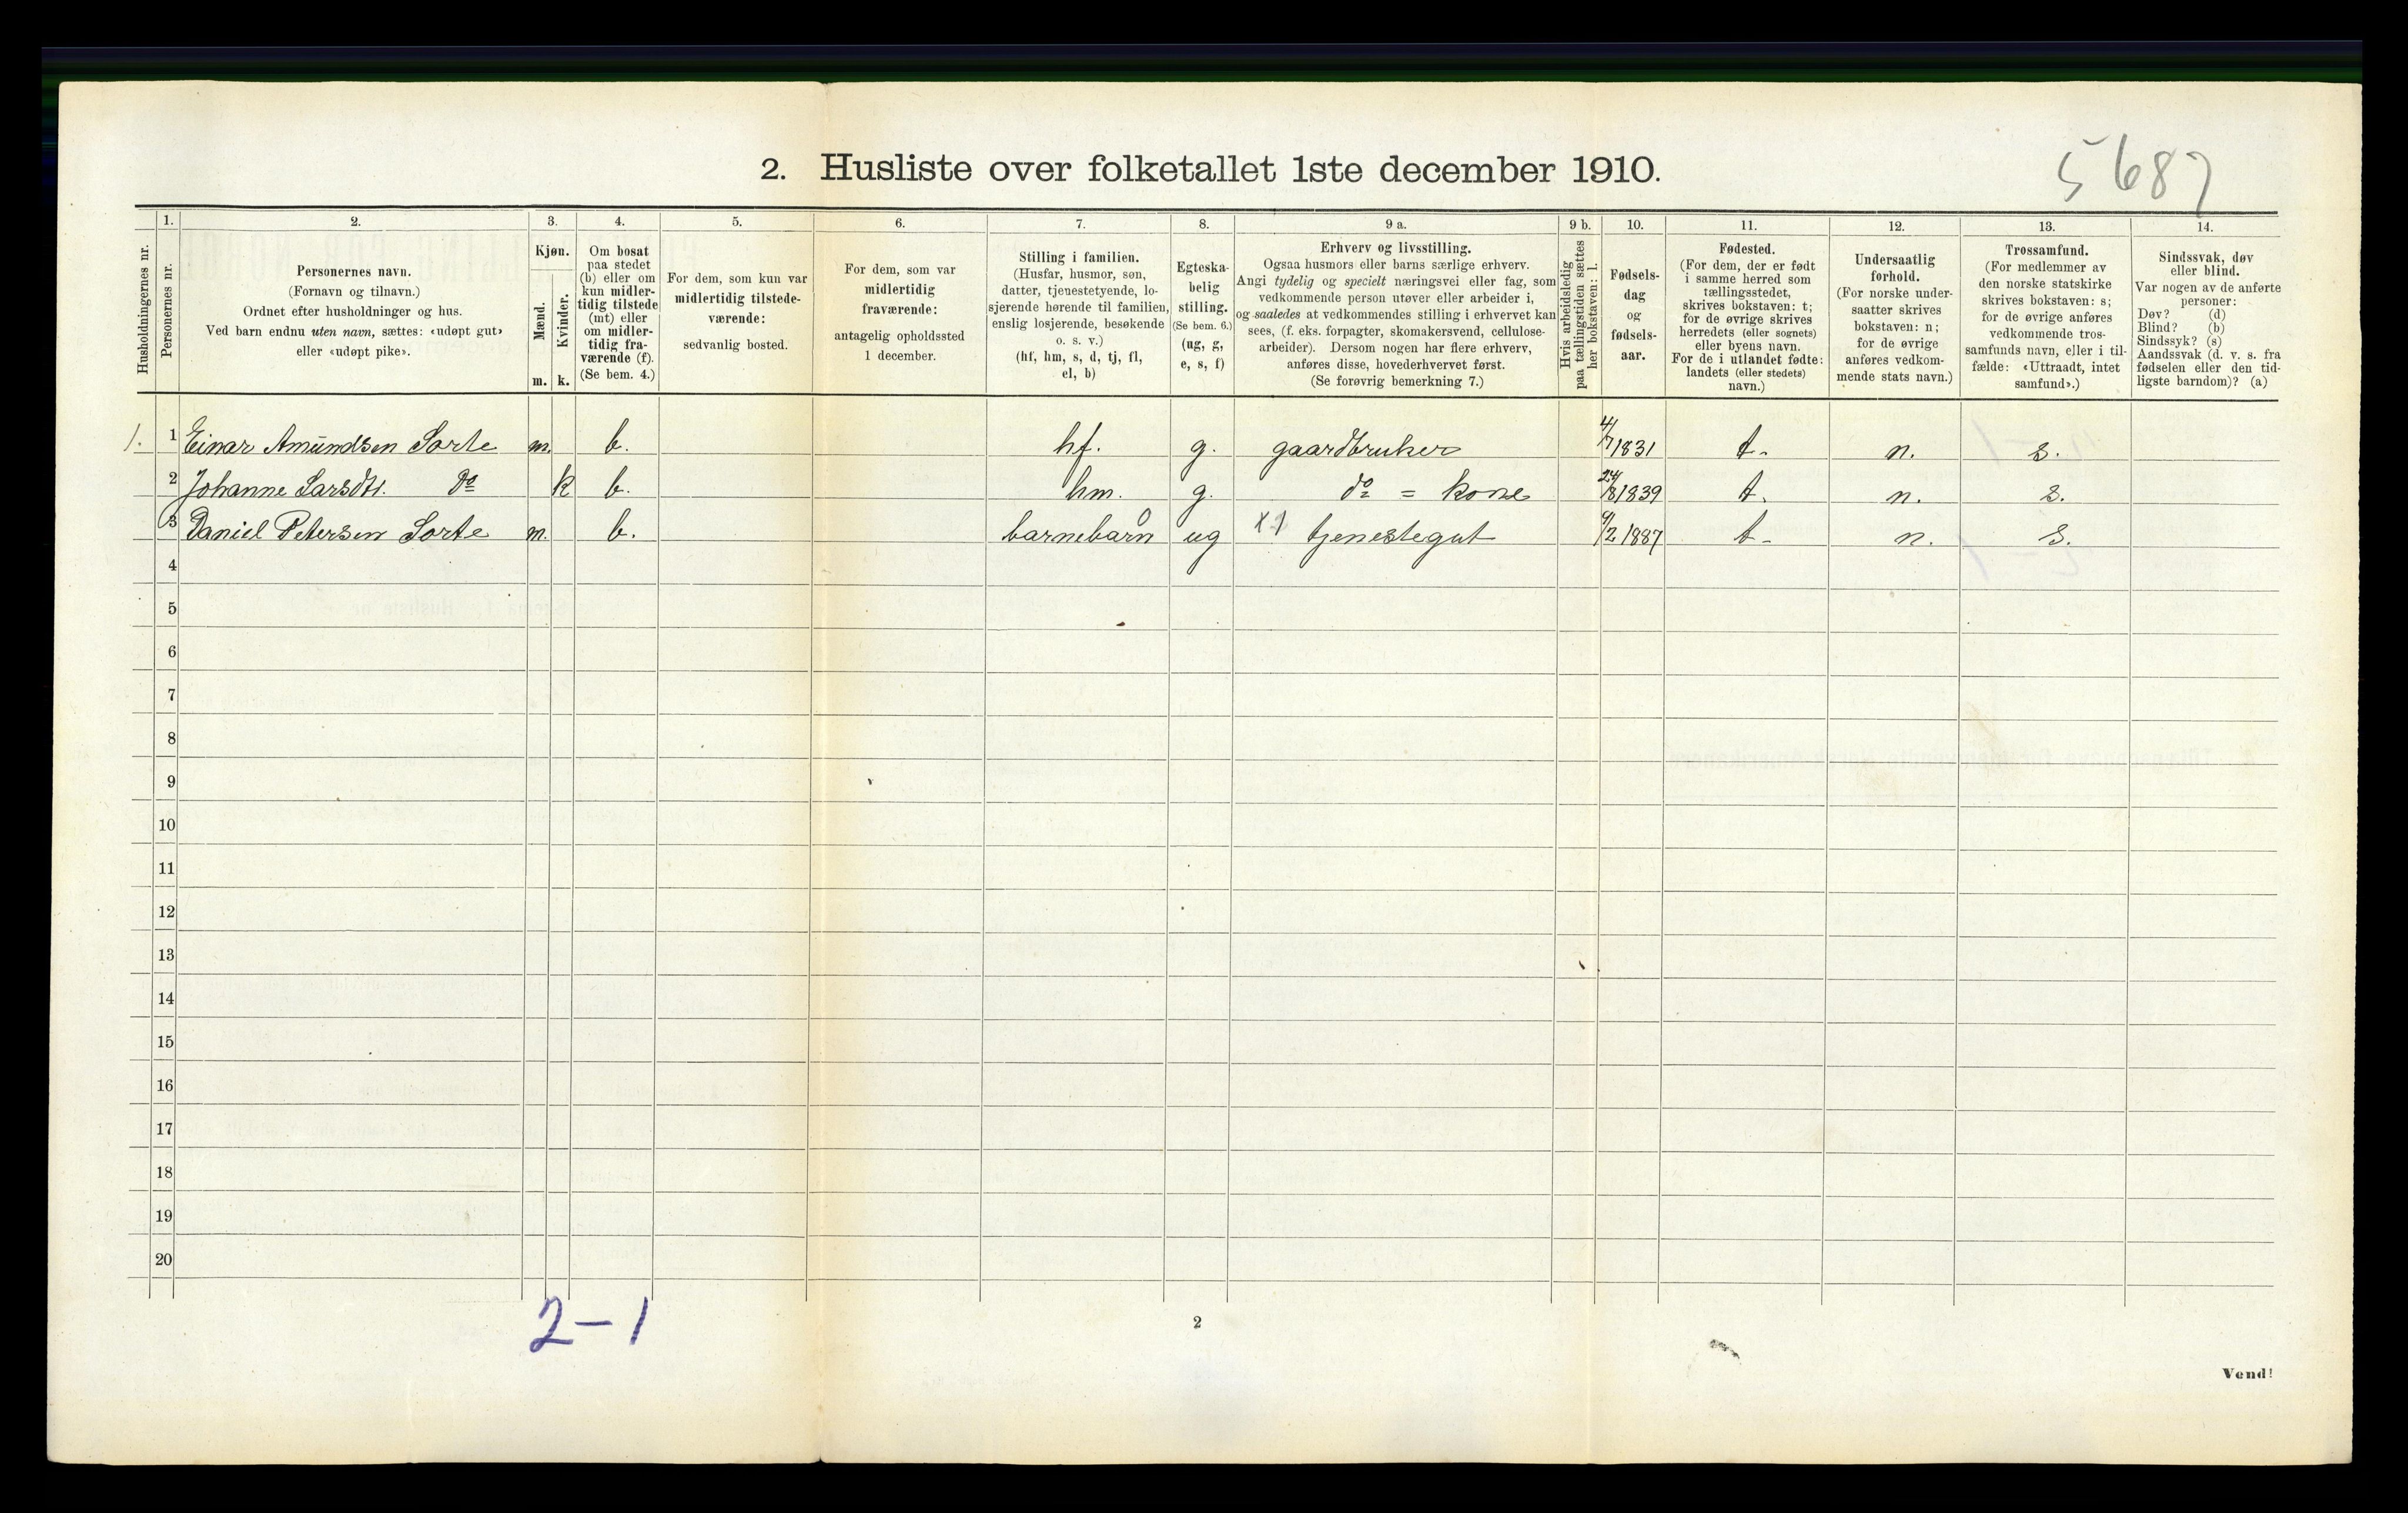 2. Husliste over folketallet 1ste december 1910.
5687
Husholdningernes nr.
1.
Personernes nr.
2.
Personernes navn.
(Fornavn og tilnavn.)
Ordnet efter husholdninger og hus.
Ved barn endnu uten navn, sættes: «udøpt gut»
eller «udøpt pike».
3.
Kjøn.
Mænd.
Kvinder.
m. k.
4.
Om bosat
paa stedet
(b) eller om
kun midler-
tidig tilstede
(mt) eller
om midler-
tidig fra-
værende (f).
(Se bem. 4.)
5.
For dem, som kun var
midlertidig tilstede-
værende:
sedvanlig bosted.
6.
For dem, som var
midlertidig
fraværende:
antagelig opholdssted
1 december.
7.
Stilling i familien.
(Husfar, husmor, søn,
datter, tjenestetyende, lo-
sjerende hørende til familien,
enslig losjerende, besøkende
o. s. v.)
(hf, hm, s, d, tj, fl,
el, b)
8.
Egteska-
belig
stilling.
(Se bem. 6.)
(ug, g,
e, s, f)
9 a.
Erhverv og livsstilling.
Ogsaa husmors eller barns særlige erhverv.
Angi tydelig og specielt næringsvei eller fag, som
vedkommende person utøver eller arbeider i,
og saaledes at vedkommendes stilling i erhvervet kan
sees, (f. eks. forpagter, skomakersvend, cellulose-
arbeider). Dersom nogen har flere erhverv,
anføres disse, hovederhvervet først.
(Se forøvrig bemerkning 7.)
9 b.
Hvis arbeidsledig
paa tællingstiden sættes
her bokstaven: l.
10.
Fødsels-
dag
og
fødsels-
aar.
11.
Fødested.
(For dem, der er født
i samme herred som
tællingsstedet,
skrives bokstaven: t;
for de øvrige skrives
herredets (eller sognets)
eller byens navn.
For de i utlandet fødte:
landets (eller stedets)
navn.)
12.
Undersaatlig
forhold.
(For norske under-
saatter skrives
bokstaven: n;
for de øvrige
anføres vedkom-
mende stats navn.)
13.
Trossamfund.
(For medlemmer av
den norske statskirke
skrives bokstaven: s;
for de øvrige anføres
vedkommende tros-
samfunds navn, eller i til-
fælde: «Uttraadt, intet
samfund».)
14.
Sindssvak, døv
eller blind.
Var nogen av de anførte
personer:
Døv? (d)
Blind? (b)
Sindssyk? (s)
Aandssvak (d. v. s. fra
fødselen eller den tid-
ligste barndom)? (a)
1. 1 Einar Amundsen Sorte m. b. hf. g. gaardbruker 4/7 1831 t. n. s.
2 Johanne Larsdtr. do k b. hm. g. do = kone 24/8 1839 t. n. s.
3 Daniel Petersen Sorte m. b. barnebarn ug tjenestegut 9/2 1887 t. n. s.
4
5
6
7
8
9
10
11
12
13
14
15
16
17
18
19
20
2-1
2
Vend!